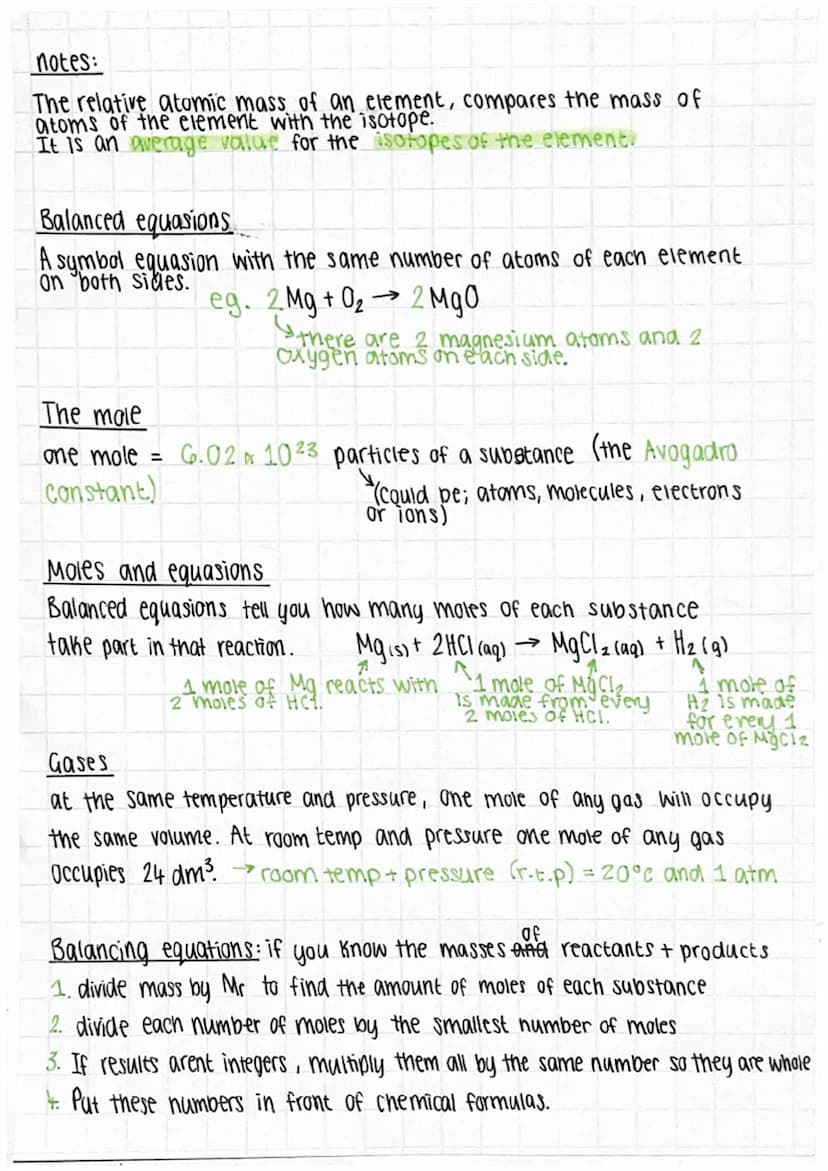 notes:
The relative atomic mass of an element, compares the mass of
atoms of the element with the isotope.
It is an average value for the isotopes of the element.
Balanced equasions
A symbol equasion with the same number of atoms of each element
on both sides.
eg. 2Mg + O₂ → 2MgO
there are 2 magnesium atoms and 2
oxygen atoms on each side.
The mole
one mole = 6.02 x 10²³ particles of a substance (the Avogadro
constant)
(could be; atoms, molecules, electrons
or ions)
Moles and equasions
Balanced equasions tell you how many moles of each substance
take part in that reaction. Mg(s) + 2HCl(aq) → MgCl₂(aq) + H₂(g)
1 mole of Mg reacts with
2 moles of HCl.
1 mole of MgCl₂
is made from every
2 moles of HCl.
1 mole of
H₂ is made
for every 1
mole of MgCl₂
Gases
at the same temperature and pressure, one mole of any gas will occupy
the same volume. At room temp and pressure one mole of any gas
occupies 24 dm³. → room temp + pressure (r.t.p) = 20°c and 1 atm
Balancing equations: if you know the masses and of reactants + products
1. divide mass by Mr to find the amount of moles of each substance
2. divide each number of moles by the smallest number of moles
3. If results arent integers, multiply them all by the same number so they are whole
4. Put these numbers in front of chemical formulas.